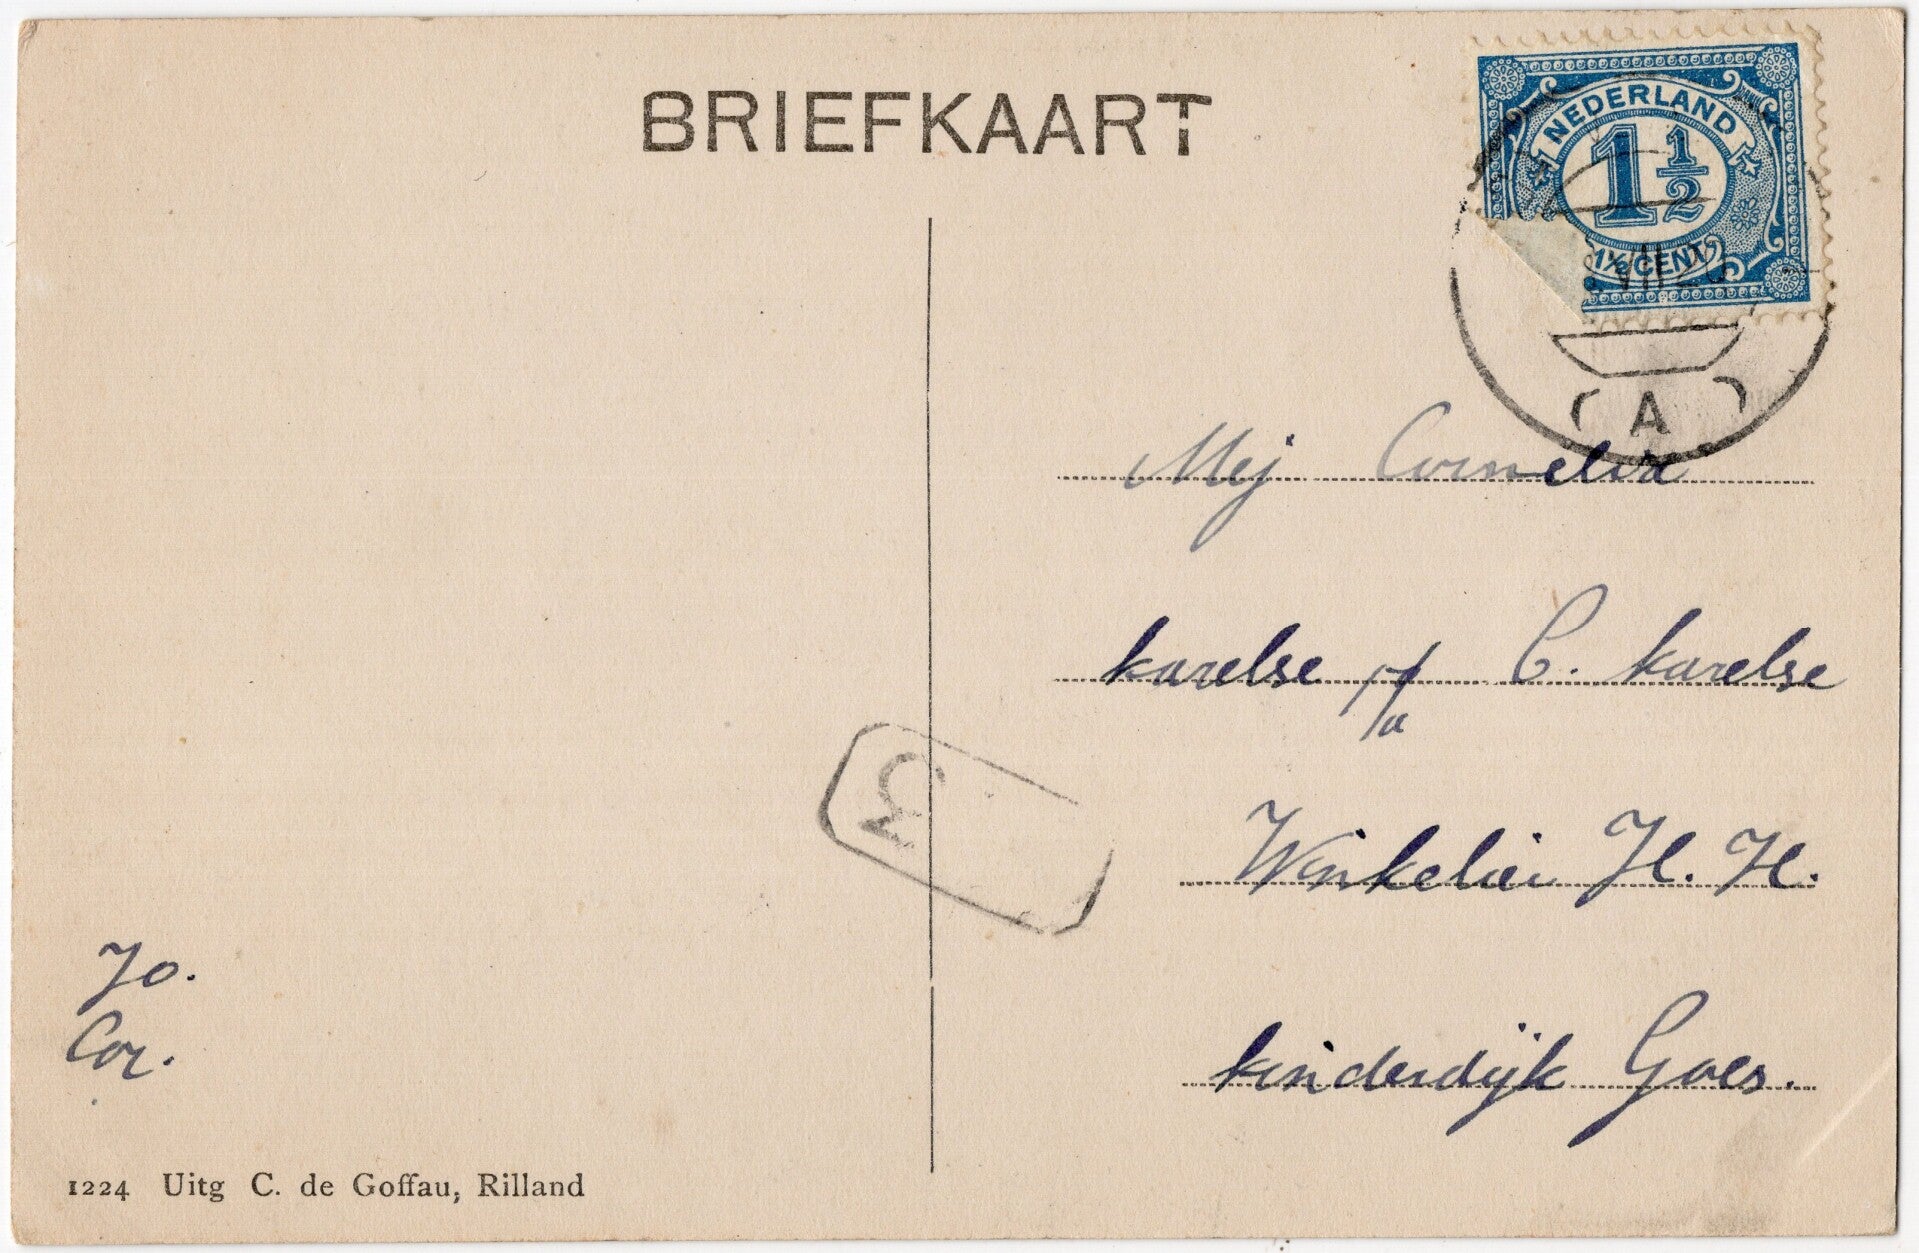 BRIEFKAART
NEDERLAND
1 1/2
1½ CENT
VII 2
A
Mej Cornelia
karelse p/a C. karelse
Winkelier H. H.
kinderdijk Goes.
Jo.
Cor.
1224 Uitg C. de Goffau, Rilland